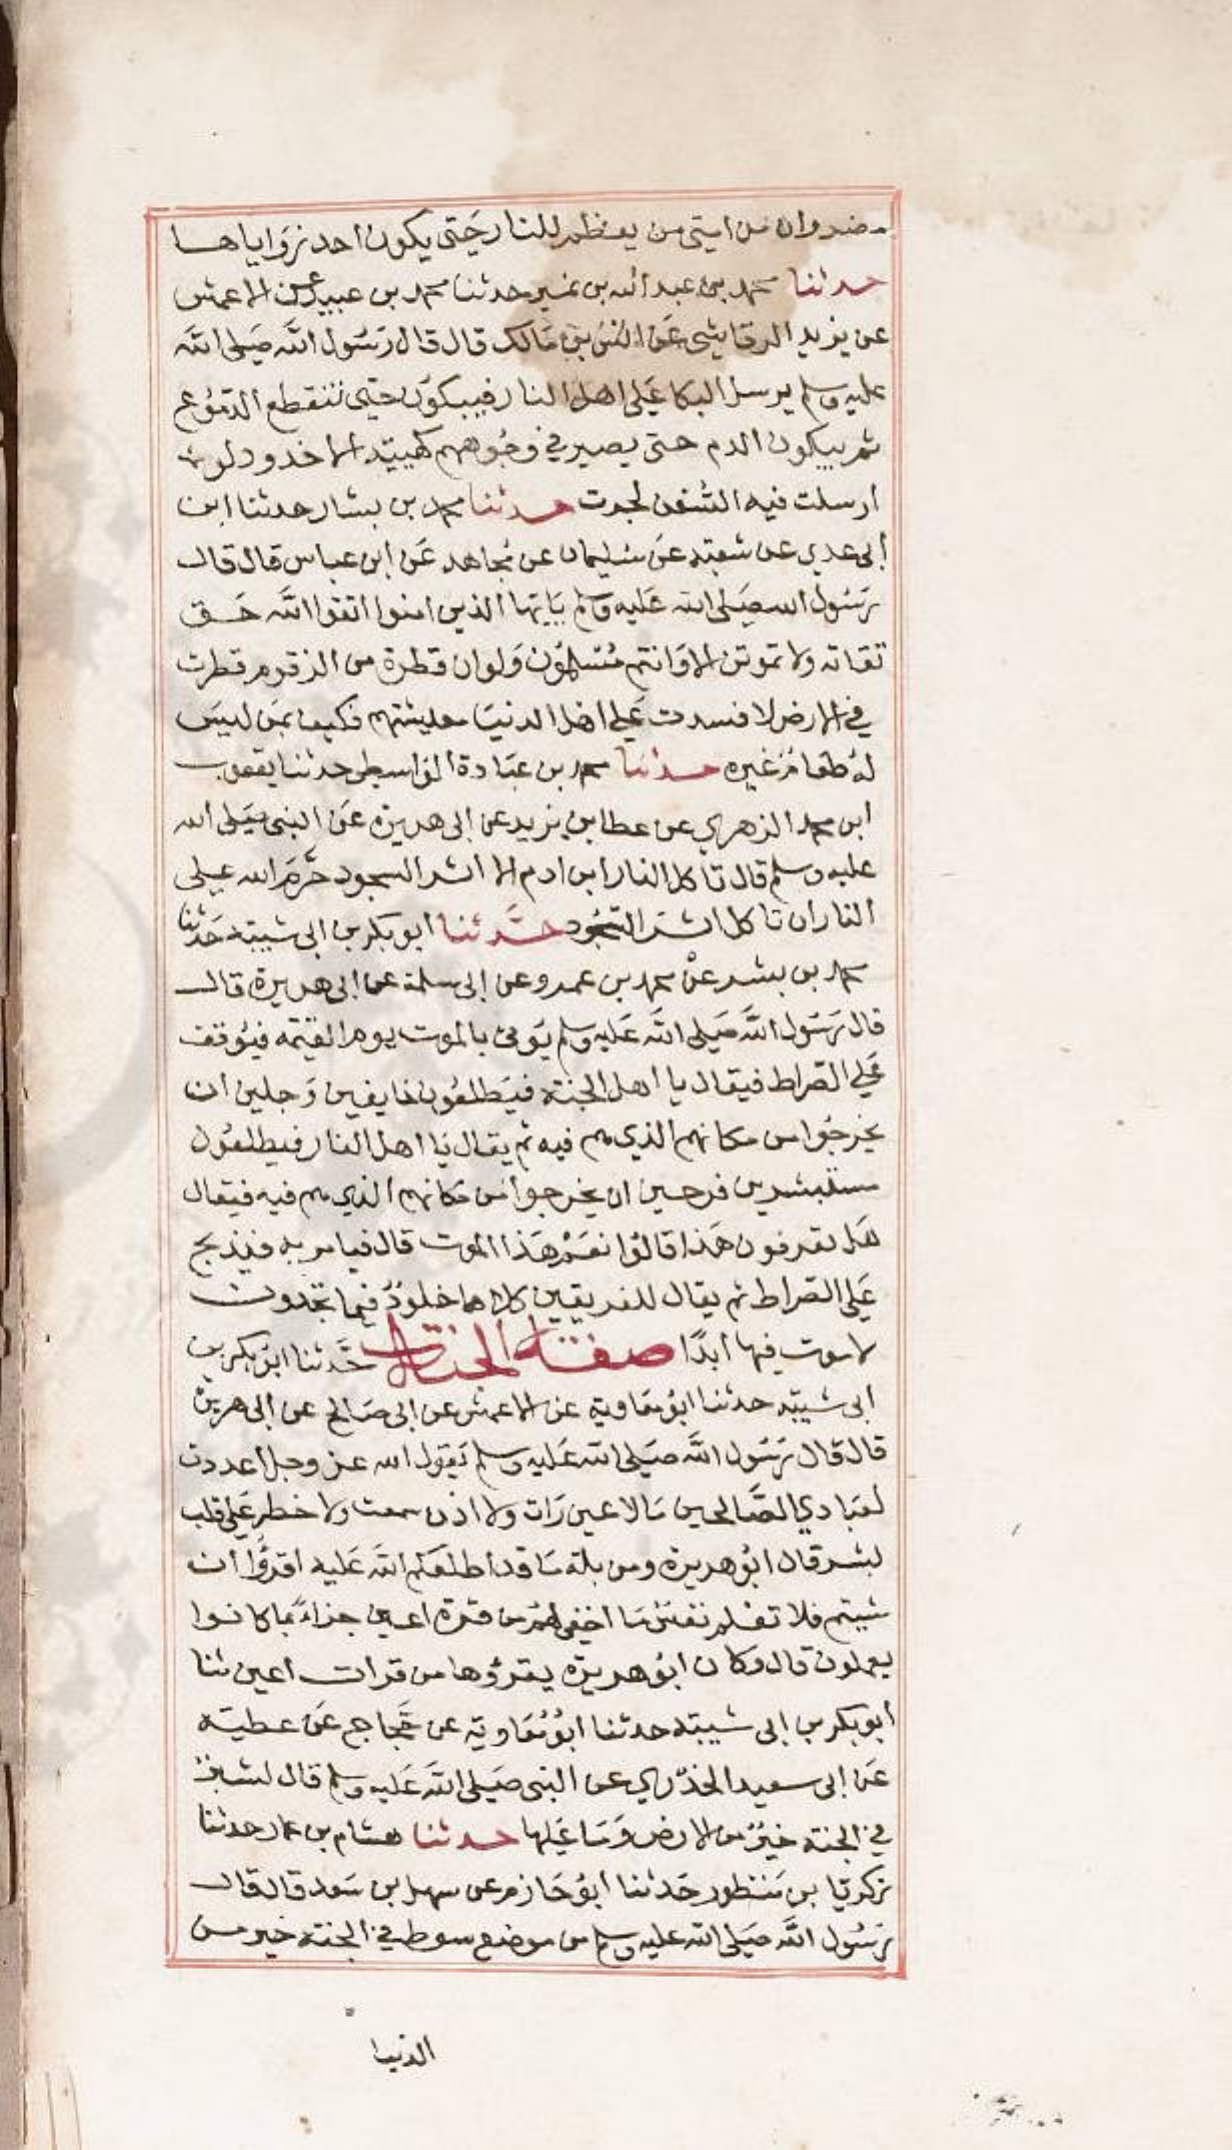 مضر وان من امتي من يعظم للنار حتى يكون احد زواياها
حدثنا محمد بن عبد الله بن نمير حدثنا محمد بن عبيد عن الاعمش
عن يزيد الرقاشي عن انس بن مالك قال قال رسول الله صلى الله
عليه وسلم يرسل البكا على اهل النار فيبكون حتى تنقطع الدموع
ثم يبكون الدم حتى يصير في وجوههم كهيئة الاخدود لو
ارسلت فيه السفن لجرت حدثنا محمد بن بشار حدثنا ابن
ابي عدي عن شعبة عن سليمان عن مجاهد عن ابن عباس قال قال
رسول الله صلى الله عليه وسلم يايها الذين امنوا اتقوا الله حق
تقاته ولا تموتن الا وانتم مسلمون ولو ان قطرة من الزقوم قطرت
في الارض لافسدت على اهل الدنيا معيشتهم فكيف بمن ليس
له طعام غيره حدثنا محمد بن عبادة الواسطي حدثنا يعقوب
ابن محمد الزهري عن عطا بن يزيد عن ابي هريرة عن النبي صلى الله
عليه وسلم قال تاكل النار ابن ادم الا اثر السجود حرم الله على
النار ان تاكل اثر السجود حدثنا ابو بكر بن ابي شيبة حدثنا
محمد بن بشر عن محمد بن عمرو عن ابي سلمة عن ابي هريرة قال
قال رسول الله صلى الله عليه وسلم يوتى بالموت يوم القيمة فيوقف
على الصراط فيقال يا اهل الجنة فيطلعون خايفين وجلين ان
يخرجوا من مكانهم الذي هم فيه ثم يقال يا اهل النار فيطلعون
مستبشرين فرحين ان يخرجوا من مكانهم الذي هم فيه فيقال
هل تعرفون هذا قالوا نعم هذا الموت قال فيامر به فيذبح
على الصراط ثم يقال للفريقين كلاهما خلود فيما تجدون
لا موت فيها ابدا صفة الجنة حدثنا ابو بكر بن
ابي شيبة حدثنا ابو معاوية عن الاعمش عن ابي صالح عن ابي هريرة
قال قال رسول الله صلى الله عليه وسلم يقول الله عز وجل اعددت
لعبادي الصالحين ما لا عين رات ولا اذن سمعت ولا خطر على قلب
بشر قال ابو هريرة ومن بله ما قد اطلعكم الله عليه اقرؤا ان
شيتم فلا تعلم نفس ما اخفي لهم من قرة اعين جزاء بما كانوا
يعملون قال وكان ابو هريرة يقرؤها من قرات اعين ثنا
ابو بكر بن ابي شيبة حدثنا ابو معاوية عن حجاج عن عطية
عن ابي سعيد الخدري عن النبي صلى الله عليه وسلم قال لشبر
في الجنة خير من الارض وما عليها حدثنا هشام بن عمار حدثنا
زكريا بن منظور حدثنا ابو حازم عن سهل بن سعد قال قال
رسول الله صلى الله عليه وسلم موضع سوط في الجنة خير من
الدنيا